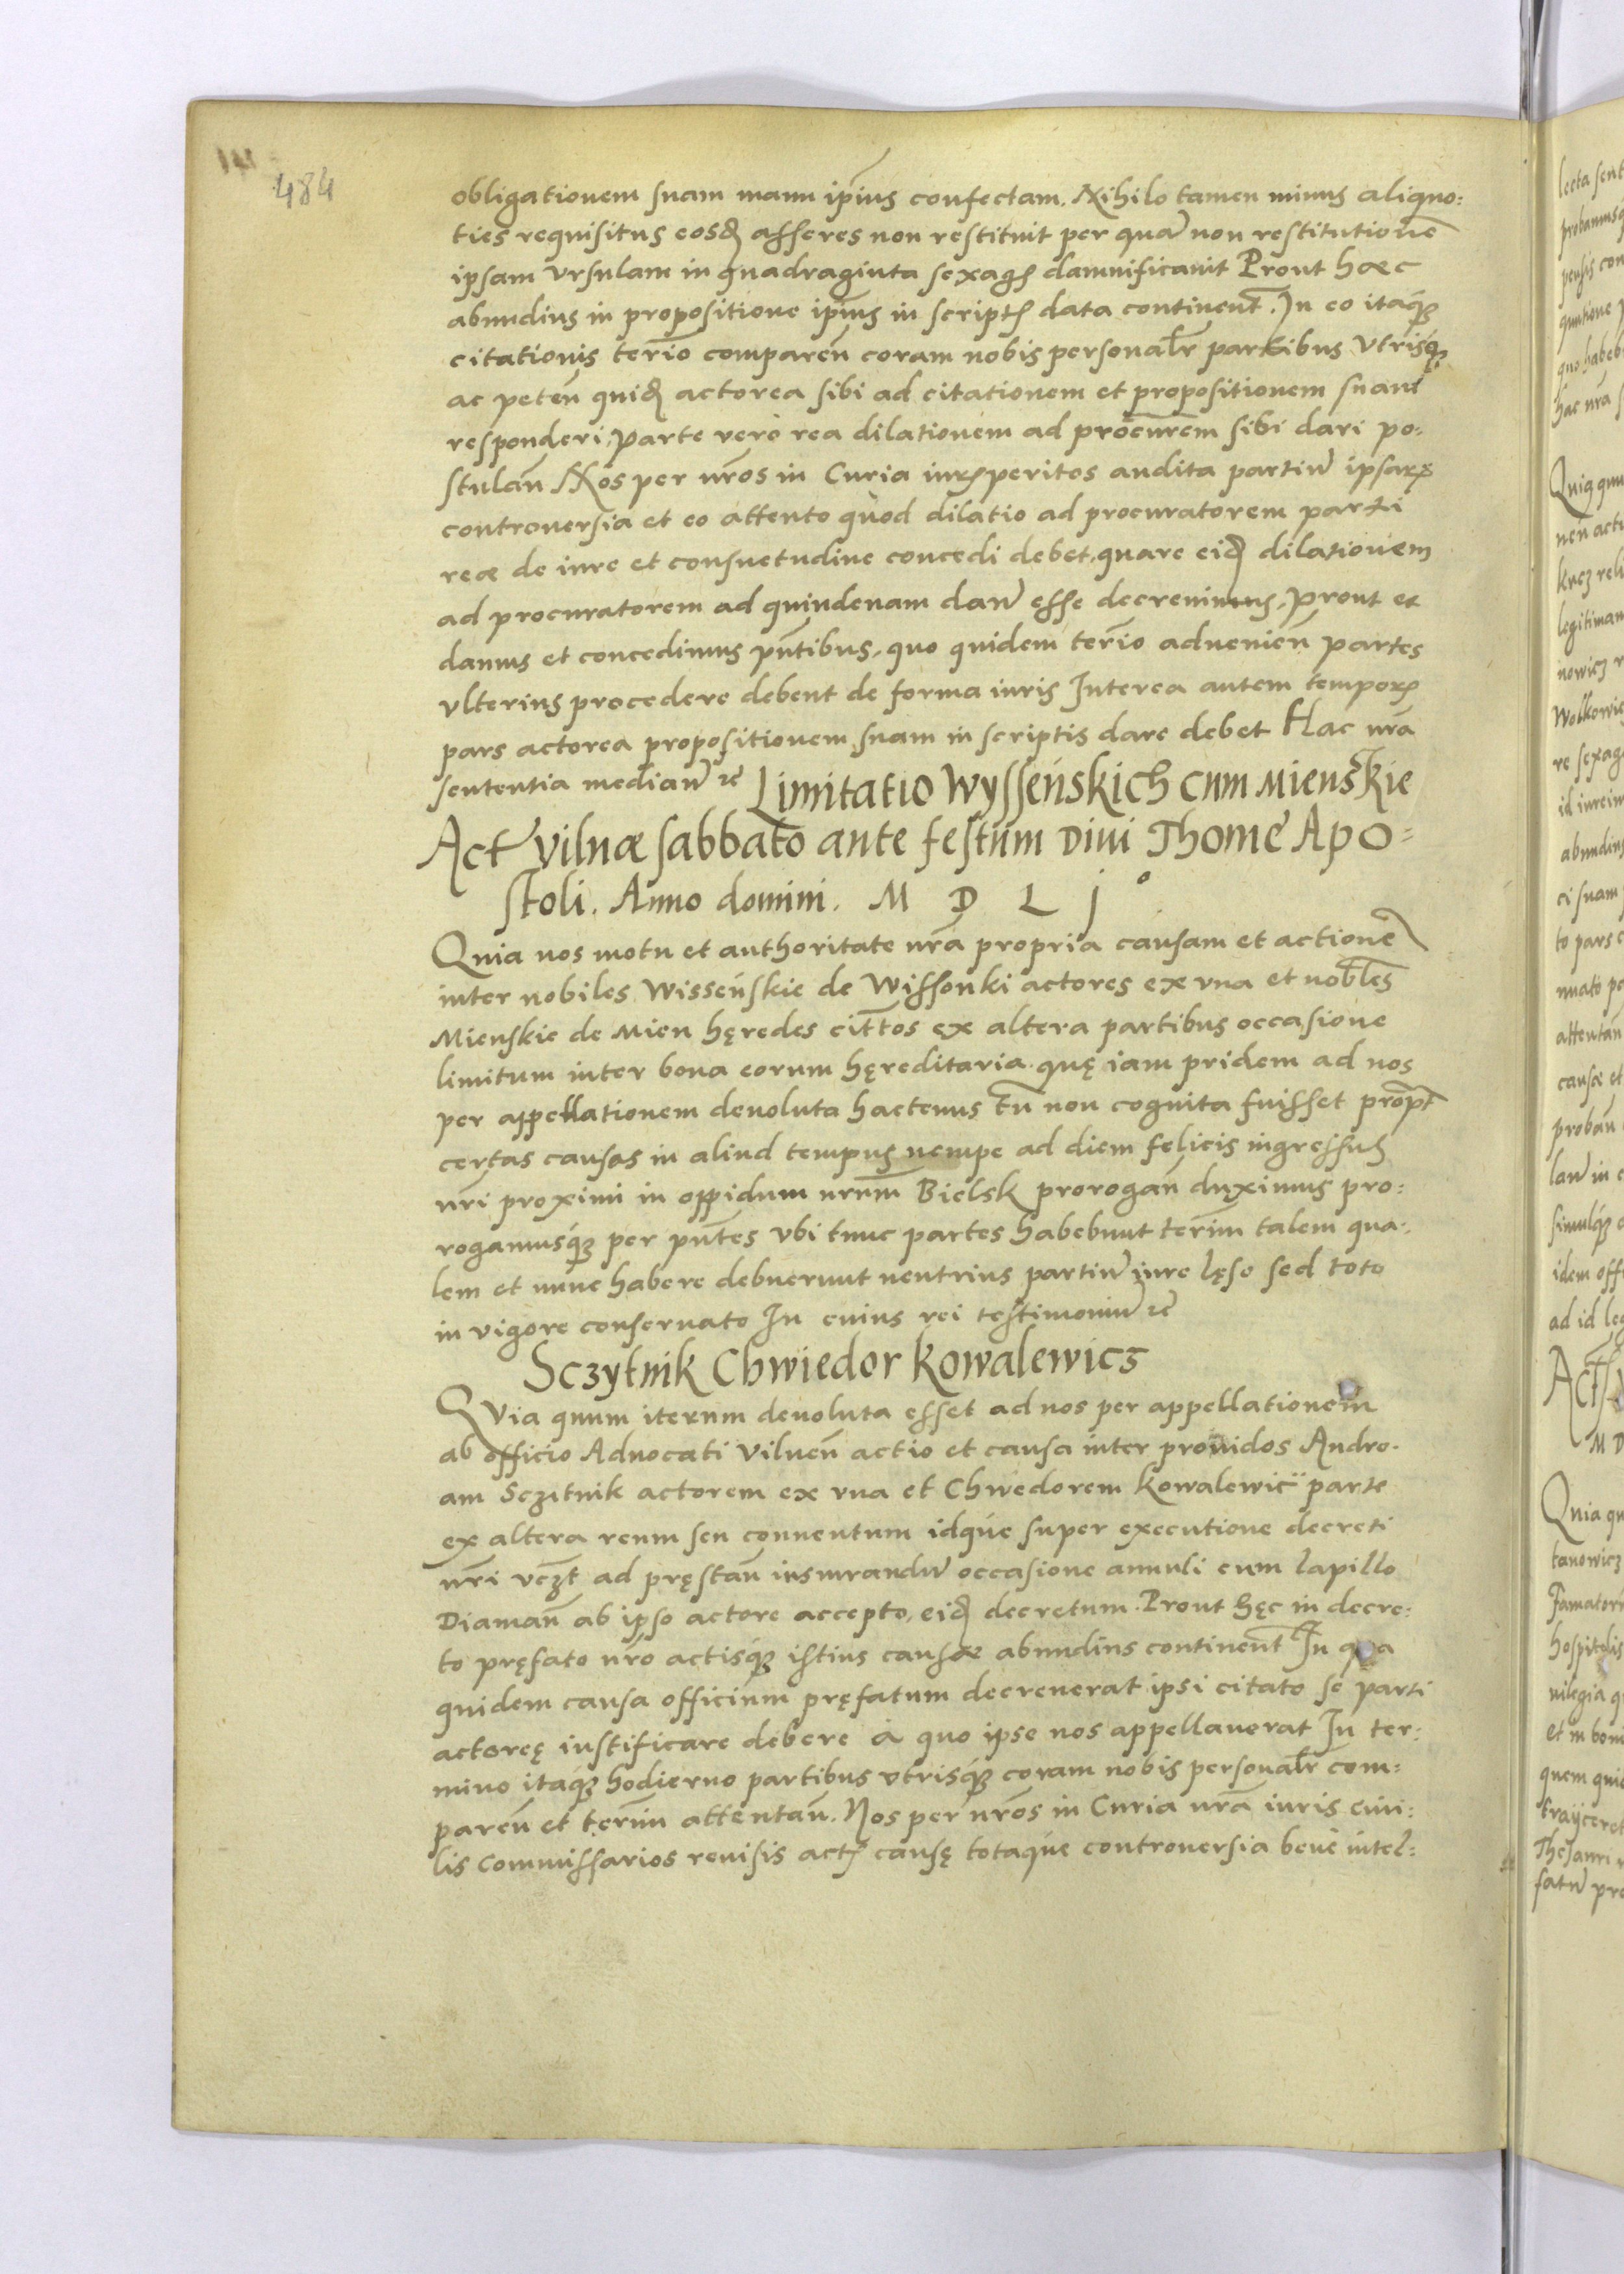 484
obligationem suam manu ip̄ius confectam. Nihilo tamen minus aliquo:
ties requisitus eosđ asseres non restituit per quam̄ non restitutionē
ipsam Vrsulam in quadraginta sexageſ damnificauit Prout haec
abundius in propositione ip̄ius in scriptſ data continent᷑. In eo itaq́ꝫ
citationis term̄io comparen̄ coram nobis personalr̄ partibus Vtrisq́ꝫ
ac peten̄ quiđ actorea sibi ad citationem et propositionem suam
responderi, Parte verò rea dilationem ad procurem̄ sibi dari po:
stulan̄ Nos per nr̄os in Curia iurꝭperitos audita partiū ipsarꝝ
controuersia et eo attento quòd dilatio ad procuratorem parti
reæ de iure et consuetudine concedi debet, quare eiđ dilationem
ad procuratorem ad quindenam dan̄ esse decreuimus, Prout et
damus et concedimus pn̄tibus, quo quidem term̄io aduenien̄ partes
vlterius procedere debent de forma iuris Interea autem temporꝭ
pars actorea propositionem suam in scriptis dare debet Hac nr̄a
sententia median̄ ꝛc̄ Limitatio Wysseńskich cum Mienskie
Act̄ Vilnæ sabbato ante festum Diui Thomę Apo=
stoli. Anno domini. M D L j°
Quia nos motu et authoritate nr̄a propria causam et actionē
inter nobiles Wisseńskie de Wissonki actores ex vna et nobl̄es
Mienskie de Mien hęredes citt̄os ex altera partibus occasione
limitum inter bona eorum hęreditaria quę iam pridem ad nos
per appellationem deuoluta hactenus tn̄ non cognita fuisset propt̄
certas causas in aliud tempus nempe ad diem felicis ingressus
nr̄i proximi in oppidum nr̄um Bielsk prorogan̄ duximus pro:
rogamusq́ꝫ per pn̄tes vbi tunc partes habebunt term̄m talem qua:
lem et nunc habere debuerunt neutrius partiū iure lęso sed toto
in vigore conseruato In cuius rei testimoniū ꝛc̄
Sczytnik Chwiedor Kowalewicz
QVia quum iterum deuoluta esset ad nos per appellationem
ab officio Aduocati Vilnen̄ actio et causa inter prouidos Andre.
am Sczitnik actorem ex vna et Chwedorem Kowalewic̈ parte
ex altera reum seu conuentum idq́ue super executione decreti
nr̄i vcꝫt ad pręstan̄ iusiurandū occasione annuli cum lapillo
Diaman̄ ab ipso actore accepto, eiđ decretum. Prout hęc in decre:
to pręfato nr̄o actisq́ꝫ istius causæ abundius continent᷑ In qua
quidem causa officium pręfatum decreuerat ipsi citato se parti
actoreę iustificare debere à quo ipse nos appellauerat In ter:
mino itaq́ꝫ hodierno partibus vtrisq́ꝫ coram nobis personalr̄ com:
paren̄ et term̄m attentan̄. Nos per nr̄os in Curia nr̄a iuris ciui:
lis Commissarios reuisis actſ causę totaq́ue controuersia benè intel: